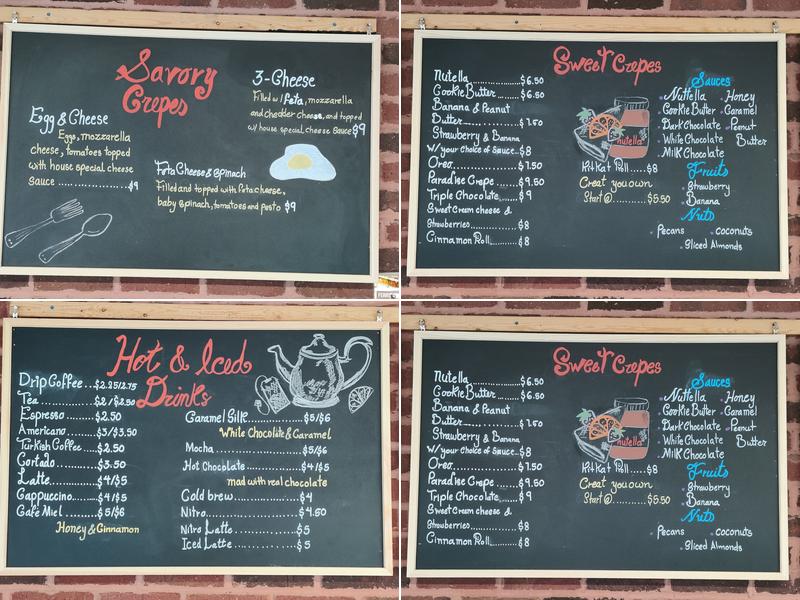 Savory
Crepes
Egg & Cheese
Eggs, mozzarella
cheese, tomatoes topped
with house special cheese
sauce ................$9
3-Cheese
Filled w/ feta, mozzarella
and cheddar cheese, and topped
w/ house special cheese sauce $9
Feta Cheese & Spinach
Filled and topped with feta cheese,
baby spinach, tomatoes and pesto $9
Sweet Crepes
Nutella ............$6.50
Cookie Butter ......$6.50
Banana & Peanut
Butter ............$7.50
Strawberry & Banana
w/ your choice of sauce...$8
Oreo ............$7.50
Paradise Crepe ....$9.50
Triple Chocolate....$9
Sweet Cream cheese &
Strawberries ..........$8
Cinnamon Roll.......$8
nutella
Kit Kat Roll ....$8
Creat you own
Start @ ........$5.50
Sauces
Nuttella
Honey
Cookie Butter
Caramel
Dark Chocolate
Peanut
Butter
White Chocolate
Milk Chocolate
Fruits
Strawberry
Banana
Nuts
Pecans
coconuts
Sliced Almonds
Hot & Iced
Drinks
Drip Coffee ..$2.25/2.75
Tea ..........$2/$2.50
Espresso ......$2.50
Americano ....$3/$3.50
Turkish Coffee ....$2.50
Cortado ..........$3.50
Latte ............$4/$5
Cappuccino ......$4/$5
Café Miel ........$5/$6
Honey & Cinnamon
Caramel Silk ............$5/$6
White Chocolate & Caramel
Mocha ................$5/$6
Hot Chocolate ..........$4/$5
made with real chocolate
Cold brew ............$4
Nitro ................$4.50
Nitro Latte ............$5
Iced Latte ............$5
Sweet Crepes
Nutella ............$6.50
Cookie Butter ......$6.50
Banana & Peanut
Butter ............$7.50
Strawberry & Banana
w/ your choice of sauce...$8
Oreo ............$7.50
Paradise Crepe ....$9.50
Triple Chocolate....$9
Sweet Cream cheese &
Strawberries ..........$8
Cinnamon Roll.......$8
nutella
Kit Kat Roll ....$8
Creat you own
Start @ ........$5.50
Sauces
Nuttella
Honey
Cookie Butter
Caramel
Dark Chocolate
Peanut
Butter
White Chocolate
Milk Chocolate
Fruits
Strawberry
Banana
Nuts
Pecans
coconuts
Sliced Almonds